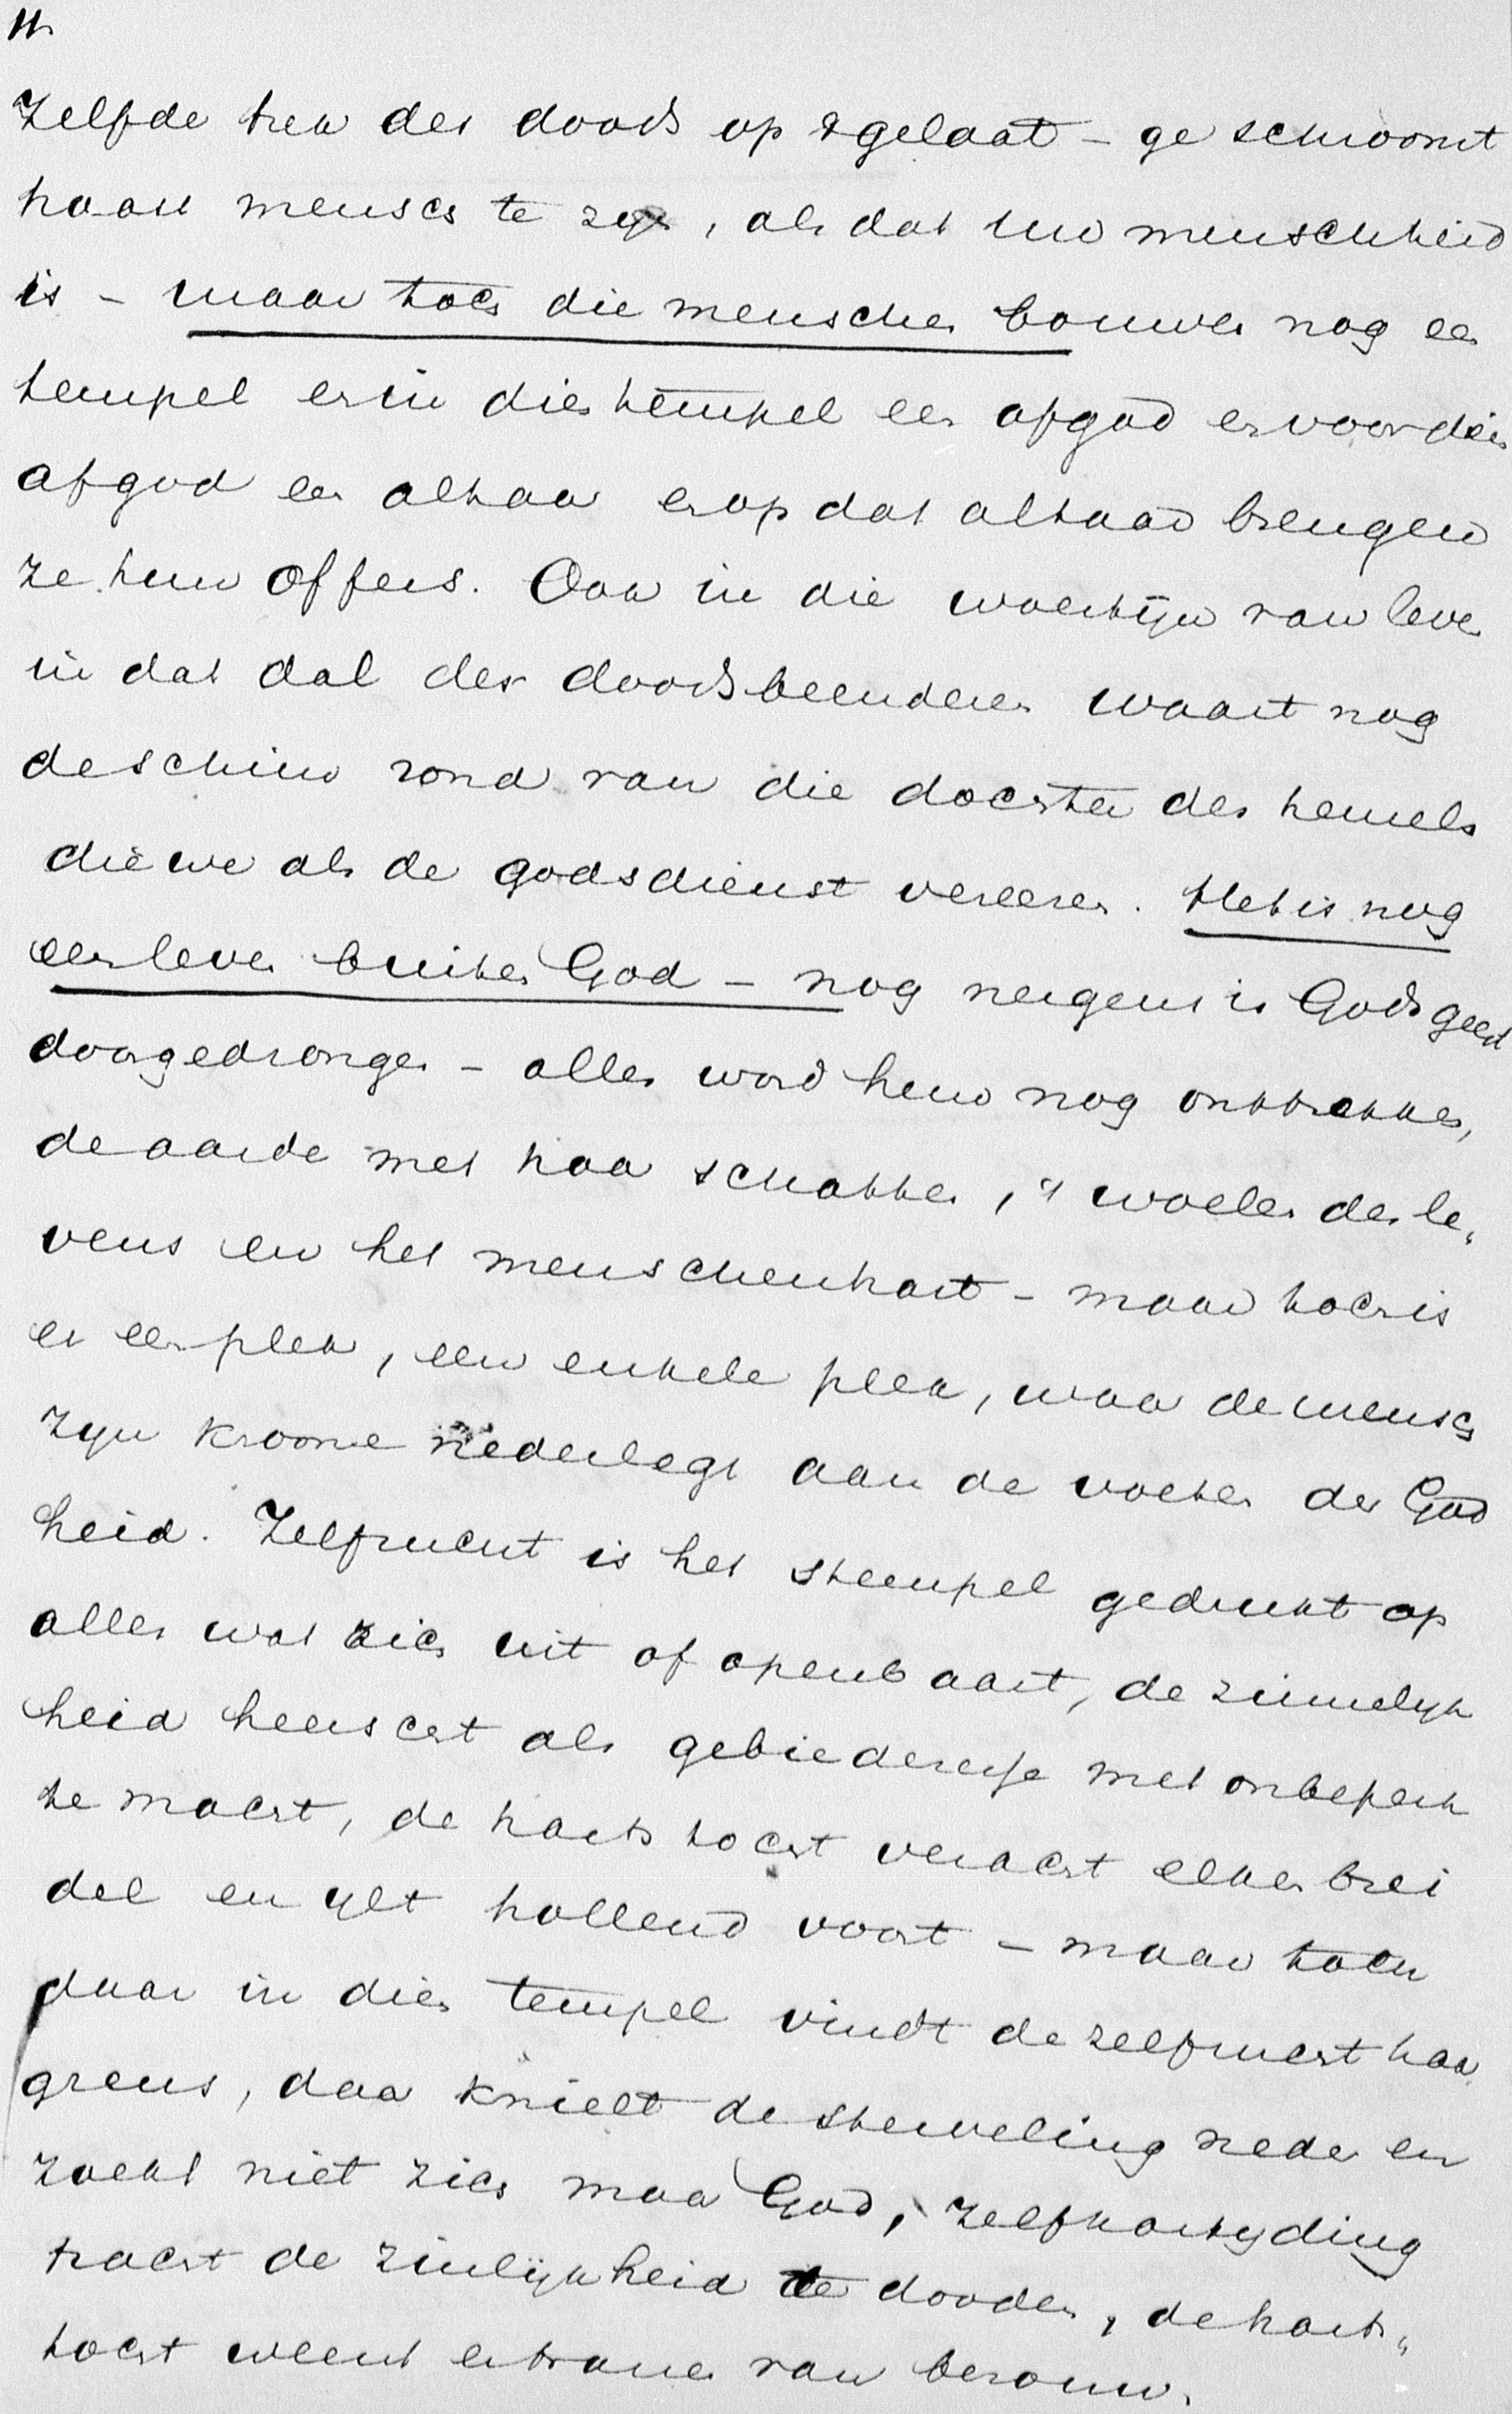 11.
Zelfde trek des doods op 't gelaat – ge schroomt
haast mensch te zyn, als dat uw menschheid
is – maar toch die menschen bouwen nog een
tempel en in dien tempel een afgod en voor dien
afgod een altaar en op dat altaar brengen
ze hun offers. Ook in die woestijn van leven
in dat dal der doodsbeenderen waart nog
de schim rond van die dochter des hemels
die we als de godsdienst vereeren. Het is nog
een leven buiten God – nog nergens is Gods geest
doorgedrongen – alles word hem nog onttrokken,
de aarde met haar schatten, 't woelen des le„
vens en het menschenhart – maar toch is
er een plek, een enkele plek, waar de mensch
zyn kroone nederlegt aan de voeten der God
heid. Zelfzucht is het stempel gedrukt op
alles wat zich uit of openbaart, de zinnelyk
heid heerscht als gebiederesse met onbeperk
te macht, de hartstocht veracht elken brei
del en ylt hollend voort – maar toch
daar in dien tempel vindt de zelfzucht haar
grens, daar knielt de sterveling neder en
zoekt niet zich maar God, zelfkastyding
tracht de zinlijkheid te dooden, de harts„
tocht weent er tranen van berouw.